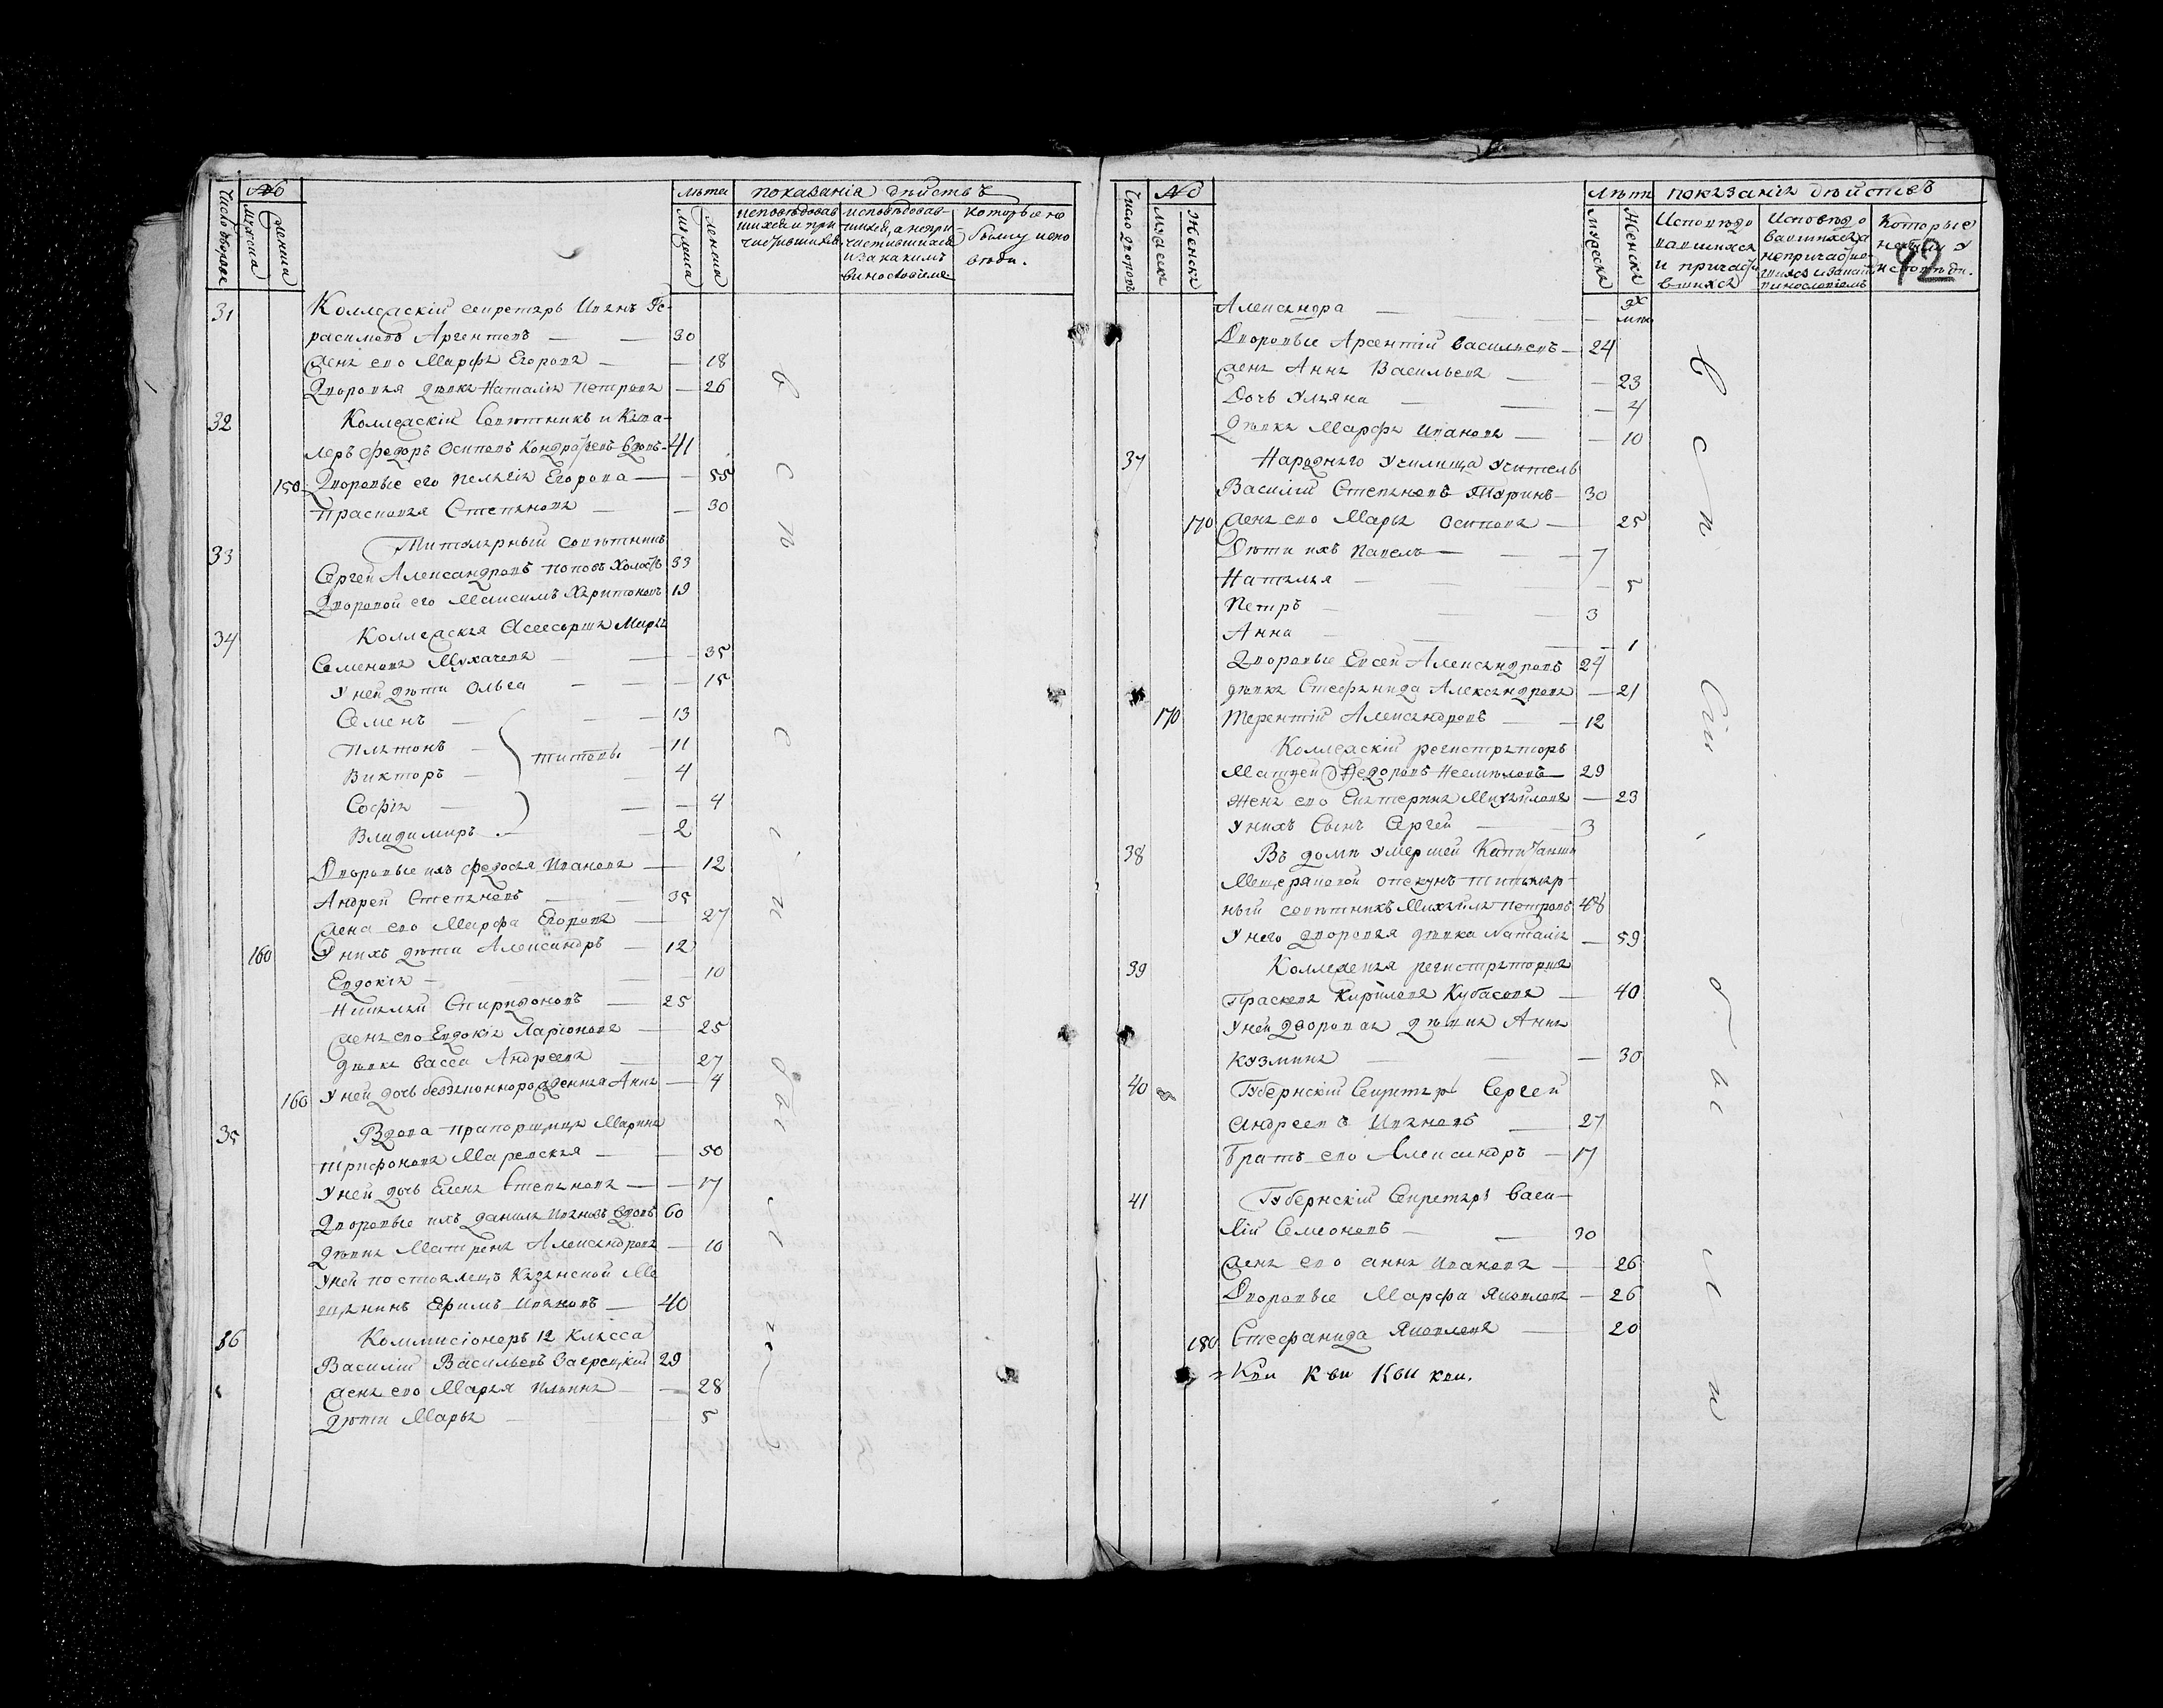 Число дворовъ
№
мужска
женска
лѣта
мужска
женска
показанія дѣйствъ
исповѣдовав
шихся и при
частившихся
исповѣдовав-
шихся, а непри
частившихся
и за какимъ
винословіемъ
которые не
были у испо
вѣди.
31 Коллежскій секретарь Иванъ Ге-
расимовъ Аргентовъ — — 30
жена его Марфа Егорова — — 18
Дворовая дѣвка Наталія Петрова — 26
32 Коллежскій Совѣтникъ и Кава-
леръ Федоръ Осиповъ Кондратьевъ вдовъ - 41
150 Дворовые его Пелагія Егорова — — 55
Прасковья Степанова — — 30
33 Титулярный совѣтникъ
Сергей Александровъ Поповъ холостъ 33
Дворовой его Максимъ Харитоновъ 19
34 Коллежская Асессорша Марья
Семенова Мухачева — — 35
У ней дѣти Ольга — — — 15
Семенъ — — — 13
Платонъ — Титовы — 11
Викторъ — — 4
Софія — — — 4
Владимиръ — — 2
Дворовые ихъ Федосья Иванова — 12
Андрей Степановъ — — 35
жена его Марфа Егорова — 27
160 У нихъ дѣти Александръ — 12
Евдокія — — 10
Николай Спиридоновъ — 25
жена его Евдокія Ларіонова — 25
дѣвка Васса Андреева — 27
160 У ней дочь беззаконнорожденная Анна — 4
35 Вдова прапорщица Марина
Трифонова Маревская — — 50
У ней дочь Елена Степанова — — 17
Дворовые ихъ Данила Ивановъ вдовъ 60
дѣвка Матрена Александрова — 10
У ней постоялецъ Казанской Ме
щанинъ Ефимъ Ивановъ — 40
36 Коммисіонеръ 12 класса
Василій Васильевъ Загрецкій 29
жена его Марья Ильина — — 28
дѣти Марья — — 5
Число дворовъ
№
мужска
Женска
лѣта
мужеска
Женска
показанія дѣйствъ
Исповѣдо
вавшихся
и причасти
вшихся
Исповѣдо
вавшихся а
непричасти
вшихся и за какимъ
винословіемъ
Которые
небыли у
исповѣди.
92
Александра — — —
Дворовые Арсентій Васильевъ — 24
жена Анна Васильева — — 23
Дочь Ульяна — — — 4
Дѣвка Марфа Иванова — — 10
37 Народнаго Училища Учитель
Василій Степановъ Тюринъ — 30
170 жена его Марья Осипова — 25
Дѣти ихъ Павелъ — — — 7
Наталья — — — 5
Петръ — — — 3
Анна — — — 1
Дворовые Евсей Александровъ 24
дѣвка Стефанида Александрова — 21
170 Терентій Александровъ — — 12
Коллежскій регистраторъ
Матвей Федоровъ Неемыловъ — 29
жена его Екатерина Михайлова — 23
У нихъ Сынъ Сергей — — 3
38 Въ домѣ умершей Капитанши
Мещеряковой опекунъ титуляр-
ный совѣтникъ Михайла Петровъ 48
У него дворовая дѣвка Наталія — 59
39 Коллежская регистраторша
Прасковья Кирилова Кубасова — 40
У ней дворовая дѣвка Анна
Кузмина — — — 30
40 Губернскій Секретарь Сергей
Андреевъ Ивановъ — 27
Братъ его Александръ — 17
41 Губернскій Секретарь Васи-
лій Семеновъ — — 30
жена его Анна Иванова — 26
Дворовые Марфа Яковлева — 26
180 Стефанида Яковлева — 20